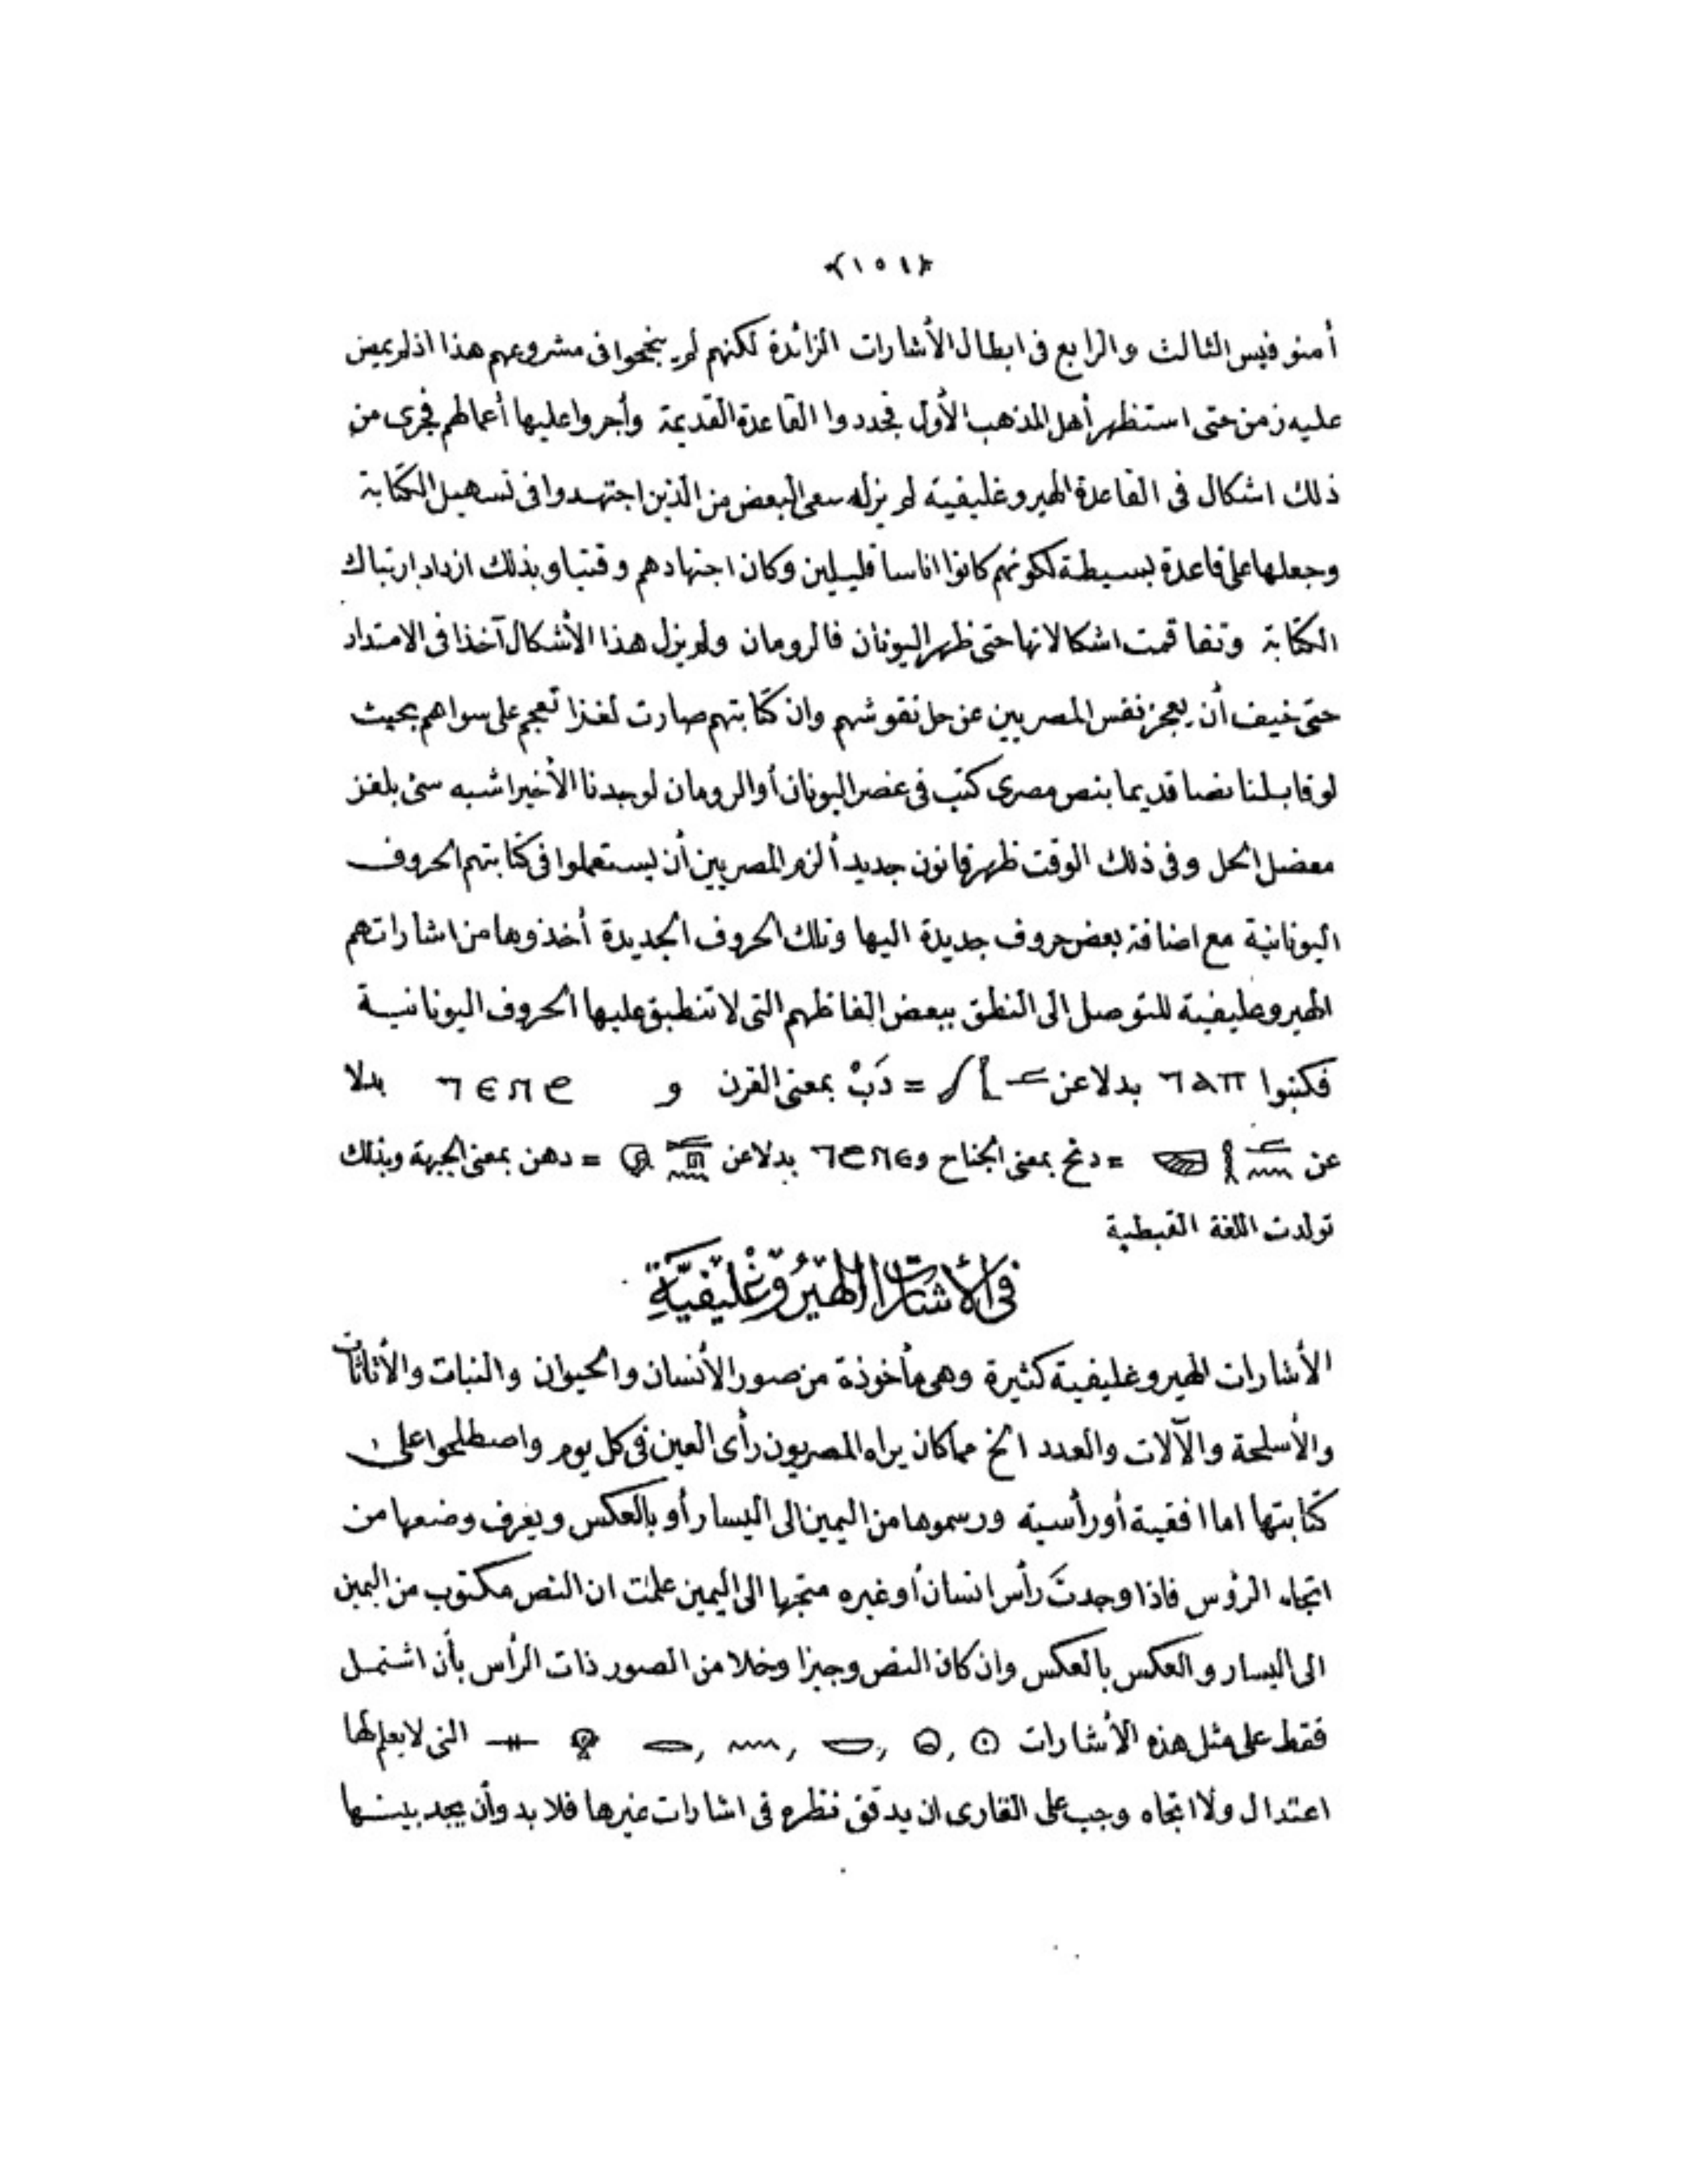 ﴿١٥١﴾
أمنوفيس الثالث والرابع فى ابطال الأشارات الزائدة لكنهم لم ينجحوا فى مشروعهم هذا اذ لم يمض
عليه زمن حتى استظهر أهل المذهب الأول فجددوا القاعدة القديمة وأجروا عليها أعمالهم فجرى من
ذلك اشكال فى القاعدة الهيروغليفية لم يزله سعى البعض من الذين اجتهدوا فى تسهيل الكتابة
وجعلها على قاعدة بسيطة لكونهم كانوا اناسا قليلين وكان اجتهادهم وقتيا وبذلك ازداد ارتباك
الكتابة وتفاقمت اشكالاتها حتى ظهر اليونان فالرومان ولم يزل هذا الأشكال آخذا فى الامتداد
حتى خيف أن يعجز نفس المصريين عن حل نقوشهم وان كتابتهم صارت لغزا تعجم على سواهم بحيث
لو قابلنا نصا قديما بنص مصرى كتب فى عصر اليونان أو الرومان لوجدنا الأخير اشبه شئ بلغز
معضل الحل وفى ذلك الوقت ظهر قانون جديد ألزم المصريين أن يستعملوا فى كتابتهم الحروف
اليونانية مع اضافة بعض حروف جديدة اليها وتلك الحروف الجديدة أخذوها من اشاراتهم
الهيروطليفية للتوصل الى النطق ببعض الفاظهم التى لا تنطبق عليها الحروف اليونانية
فكتبوا ⲧⲁⲡ بدلا عن = دَبْ بمعنى القرن و ⲧⲉⲛϩ بدلا
عن = دنح بمعنى الجناح و ⲧⲉϩⲛⲉ بدلا عن = دهن بمعنى الجبهة وبذلك
تولدت اللغة القبطية
فى الأشارات الهيروغليفية
الأشارات الهيروغليفية كثيرة وهى مأخوذة من صور الأنسان والحيوان والنبات والأثاثات
والأسلحة والآلات والعدد الخ مما كان يراه المصريون رأى العين فى كل يوم واصطلحوا على
كتابتها اما افقية أو رأسية ورسموها من اليمين الى اليسار أو بالعكس ويعرف وضعها من
اتجاه الرؤس فاذا وجدتَ رأس انسان أو غيره متجها الى اليمين علمت ان النص مكتوب من اليمين
الى اليسار والعكس بالعكس وان كان النص وجيزا وخلا من الصور ذات الرأس بأن اشتمل
فقط على مثل هذه الأشارات التى لا يعلم لها
اعتدال ولا اتجاه وجب على القارى ان يدقق نظره فى اشارات غيرها فلا بد وأن يجد بينها